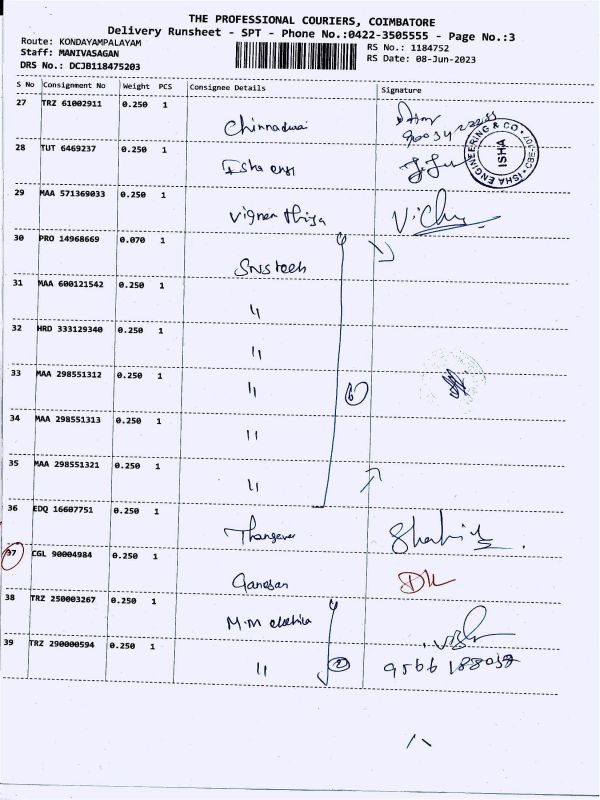 THE PROFESSIONAL COURIERS, COIMBATORE
Delivery Runsheet - SPT - Phone No.:0422-3505555 - Page No.:3
Route: KONDAYAMPALAYAM RS No.: 1184752
Staff: MANIVASAGAN RS Date: 08-Jun-2023
DRS No.: DCJB118475203
S No Consignment No Weight PCS Consignee Details Signature
27 TRZ 61002911 0.250 1
Chinnadurai
28 TUT 6469237 0.250 1
Isha eng
ISHA ENGINEERING & CO
ISHA
29 MAA 571369033 0.250 1
30 PRO 14968669 0.070 1
SNS tech
31 MAA 600121542 0.250 1
〃
32 HRD 333129340 0.250 1
〃
33 MAA 298551312 0.250 1
〃 6
34 MAA 298551313 0.250 1
〃
35 MAA 298551321 0.250 1
〃
36 EDQ 16607751 0.250 1
37 CGL 90004984 0.250 1
Ganesan
38 TRZ 250003267 0.250 1
39 TRZ 290000594 0.250 1
〃 2 9566188038